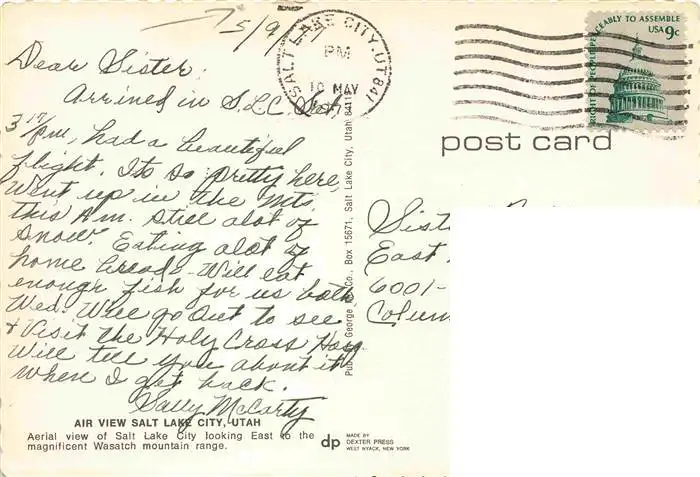 5/9
Dear Sister:
Arrived in S.L.C. Sat,
3 17 pm, had a beautiful
flight. Its so pretty here
Went up in the Mts.
this Am. still alot of
snow. Eating alot of
home breads - Will eat
enough fish for us both
Wed. Will go out to see
+ Visit the Holy Cross Hosp
Will tell you about it
when I get back.
Sally McCarty
AIR VIEW SALT LAKE CITY, UTAH
Aerial view of Salt Lake City looking East to the
magnificent Wasatch mountain range.
dp
MADE BY
DEXTER PRESS
WEST NYACK, NEW YORK
Pub. George Co., Box 15671, Salt Lake City, Utah 8411
SALT LAKE CITY, UT 841
PM
10 MAY
RIGHT OF PEOPLE PEACEABLY TO ASSEMBLE
USA 9c
post card
Sist
East
6001-
Colum